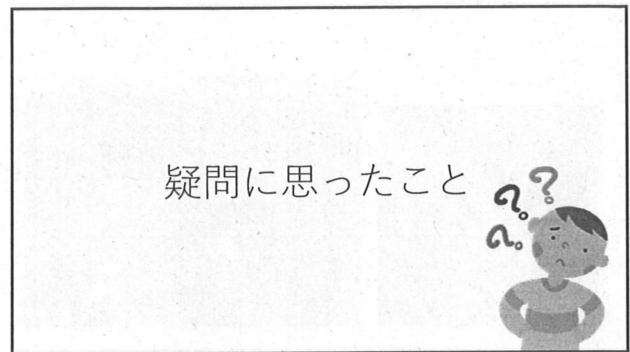 疑問に思ったこと